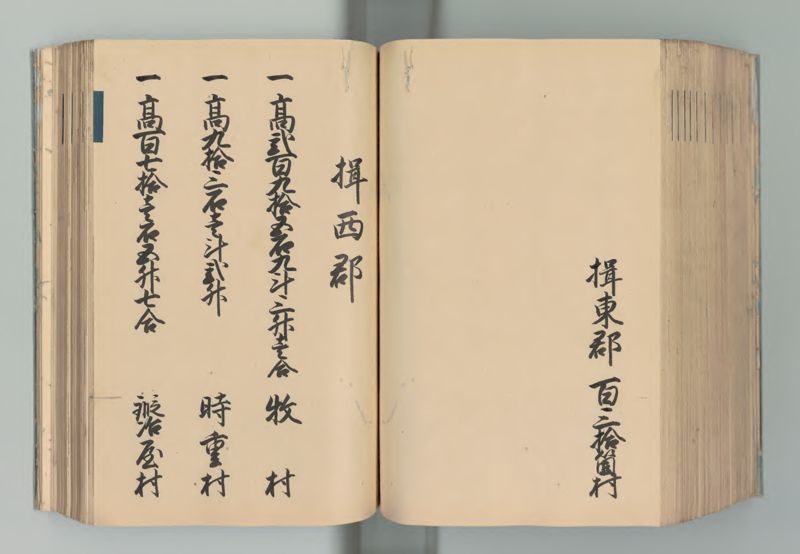 揖東郡 百三拾箇村
揖西郡
一 高弐百九拾五石九斗三升壱合 牧村
一 高九拾三石壱斗弐升 時重村
一 高百七拾壱石五升七合 屋村